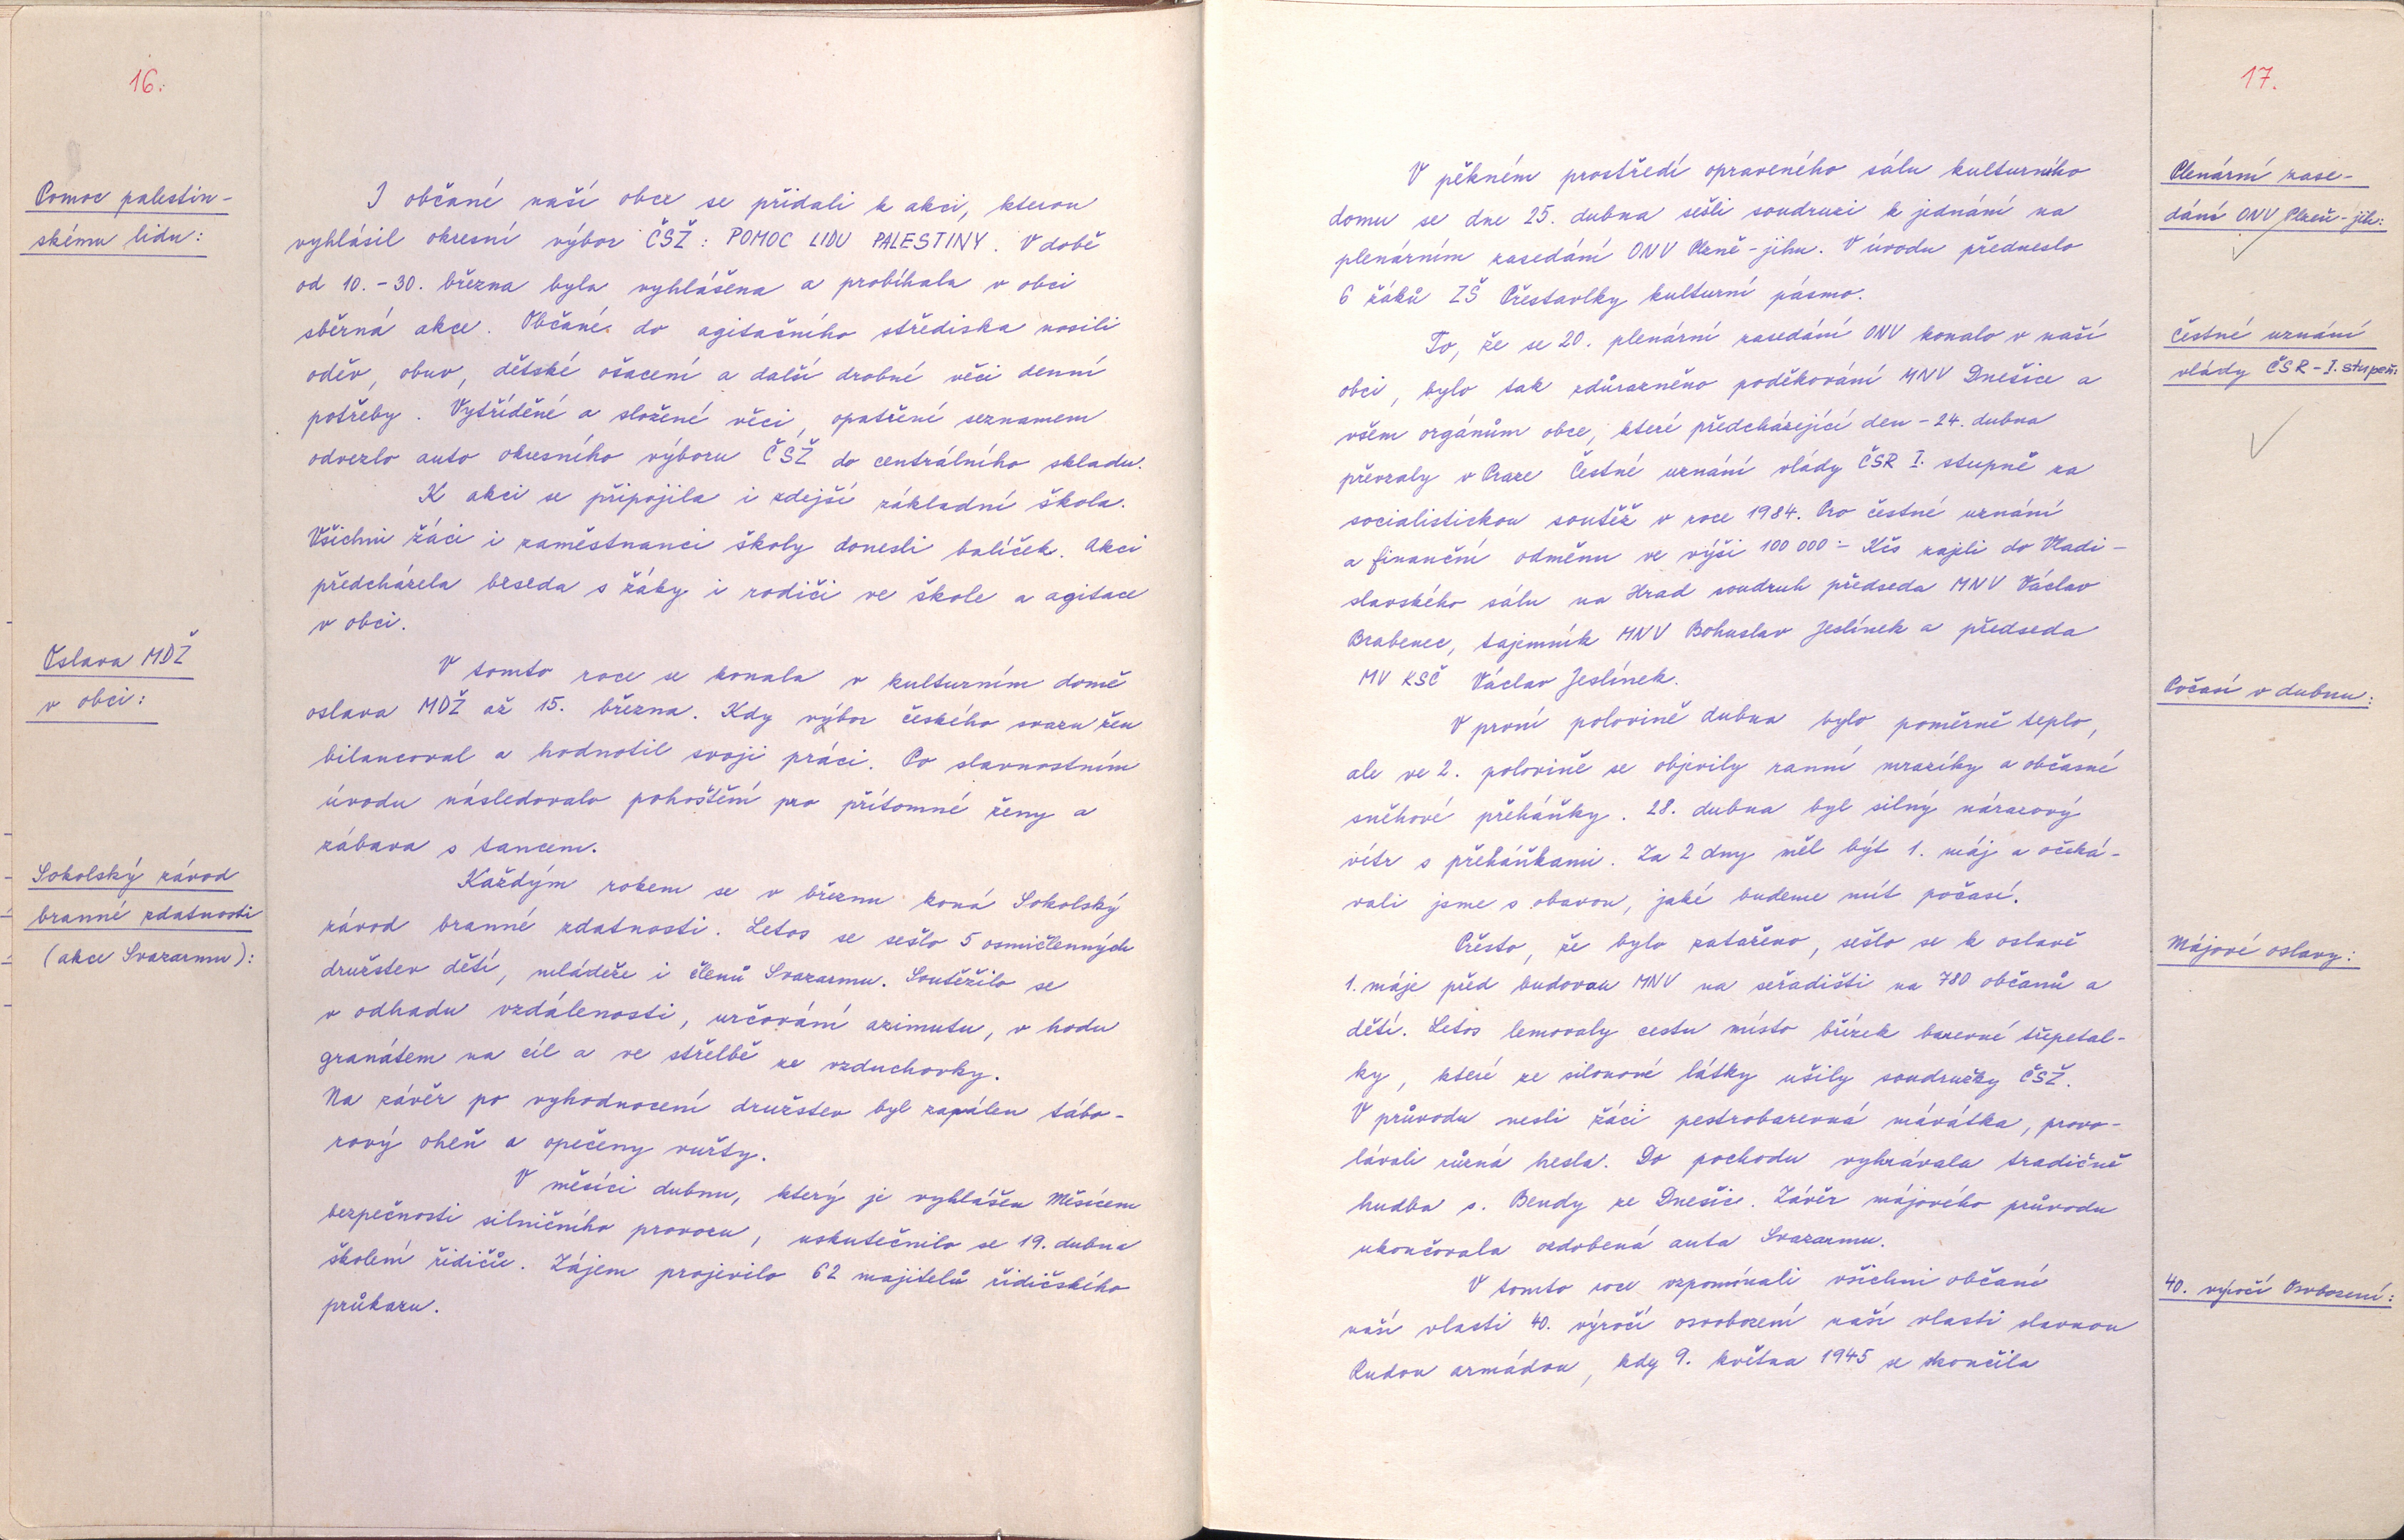 16.
Pomoc palestin-
skému lidu:
I občané naší obce se přidali k akci, kterou
vyhlásil okresní výbor ČSŽ: POMOC LIDU PALESTINY. V době
od 10.-30. března byla vyhlášena a probíhala v obci
sběrná akce. Občané do agitačního střediska nosili
oděv, obuv, dětské ošacení a další drobné věci denní
potřeby. Vytříděné a složené věci, opatření seznamem
odvezlo auto okresního výboru ČSŽ do centrálního skladu.
K akci se připojila i zdejší základní škola.
Všichni žáci i zaměstnanci školy donesli balíček. Akci
předcházela beseda s žáky i rodiči ve škole a agitace
v obci.
Oslava MDŽ
v obci:
V tomto roce se konala v kulturním domě
oslava MDŽ až 15. března. Kdy výbor českého svazu žen
bilancoval a hodnotil svoji práci. Po slavnostním
úvodu následovalo pohoštění pro přítomné ženy a
zábava s tancem.
Sokolský závod
branné zdatnosti
(akce Svazarmu):
Každým rokem se v březnu koná Sokolský
závod branné zdatnosti. Letos se sešlo 5 osmičlenných
družstev dětí, mládeže i členů Svazarmu. Soutěžilo se
v odhadu vzdálenosti, určování azimutu, v hodu
granátem na cíl a ve střelbě ze vzduchovky.
Na závěr po vyhodnocení družstev byl zapálen tábo-
rový oheň a opečeny vuřty.
V měsíci dubnu, který je vyhlášen Měsícem
bezpečnosti silničního provozu, uskutečnilo se 19. dubna
školení řidičů. Zájem projevilo 62 majitelů řidičského
průkazu.
17.
Plenární zase-
dání ONV Plzeň-jih:
V pěkném prostředí opraveného sálu kulturního
domu se dne 25. dubna sešli soudruzi k jednání na
plenárním zasedání ONV Plzně-jihu. V úvodu předneslo
6 žáků ZŠ Přestavlky kulturní pásmo.
Čestné uznání
vlády ČSR - I. stupeň:
To, že se 20. plenární zasedání ONV konalo v naší
obci, bylo tak zdůrazněno poděkování MNV Dnešice a
všem orgánům obce, které předcházející den - 24. dubna
převzaly v Praze Čestné uznání vlády ČSR I. stupně za
socialistickou soutěž v roce 1984. Pro čestné uznání
a finanční odměnu ve výši 100 000:- Kčs zajeli do Vladi-
slavského sálu na Hrad soudruh předseda MNV Václav
Brabenec, tajemník MNV Bohuslav Jeslínek a předseda
MV KSČ Václav Jeslínek.
Počasí v dubnu:
V první polovině dubna bylo poměrně teplo,
ale ve 2. polovině se objevily ranní mrazíky a občasné
sněhové přeháňky. 28. dubna byl silný nárazový
vítr s přeháňkami. Za 2 dny měl být 1. máj a očeká-
vali jsme s obavou, jaké budeme mít počasí.
Májové oslavy:
Přesto, že bylo zataženo, sešlo se k oslavě
1. máje před budovou MNV na seřadišti na 780 občanů a
dětí. Letos lemovaly cestu místo břízek barevné třepetal-
ky, které ze silonové látky ušily soudružky ČSŽ.
V průvodu nesli žáci pestrobarevná mávátka, provo-
lávali různá hesla. Do pochodu vyhrávala tradičně
hudba s. Bendy ze Dnešic. Závěr májového průvodu
ukončovala ozdobená auta Svazarmu.
40. výročí Osvobození:
V tomto roce vzpomínali všichni občané
naší vlasti 40. výročí osvobození naší vlasti slavnou
Rudou armádou, kdy 9. května 1945 se skončila